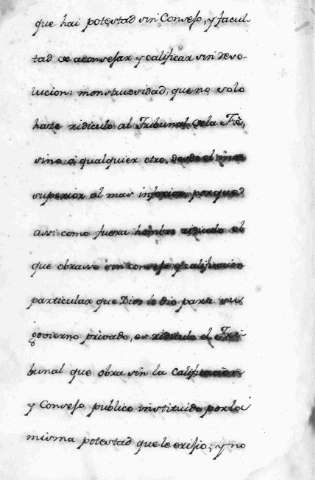 que hai potestad sin Consejo, y facul-
tad de aconsejar y calificar sin devo-
lucion: monstruosidad, que no solo
hace ridiculo al Tribunal de la Fee,
sino a qualquier otro, desde el mas
superior al mas inferior, porque
assi como fuera hombre ridiculo el
que obrase sin consejo y calificacion
particular que Dios le dio para su
govierno privado, es ridiculo el Tri-
bunal que obra sin la calificacion,
y Consejo publico instituido por la
misma potestad que le erigio; y no